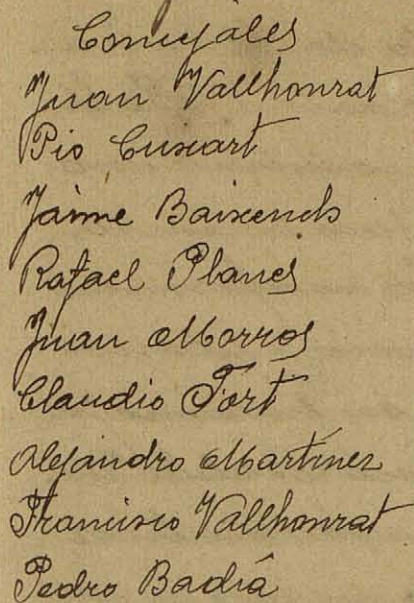 Concejales
Juan Vallhonrat
Pio Cuixart
Jaime Baixench
Rafael Planes
Juan Morros
Claudio Tort
Alejandro Martinez
Francisco Vallhonrat
Pedro Badía